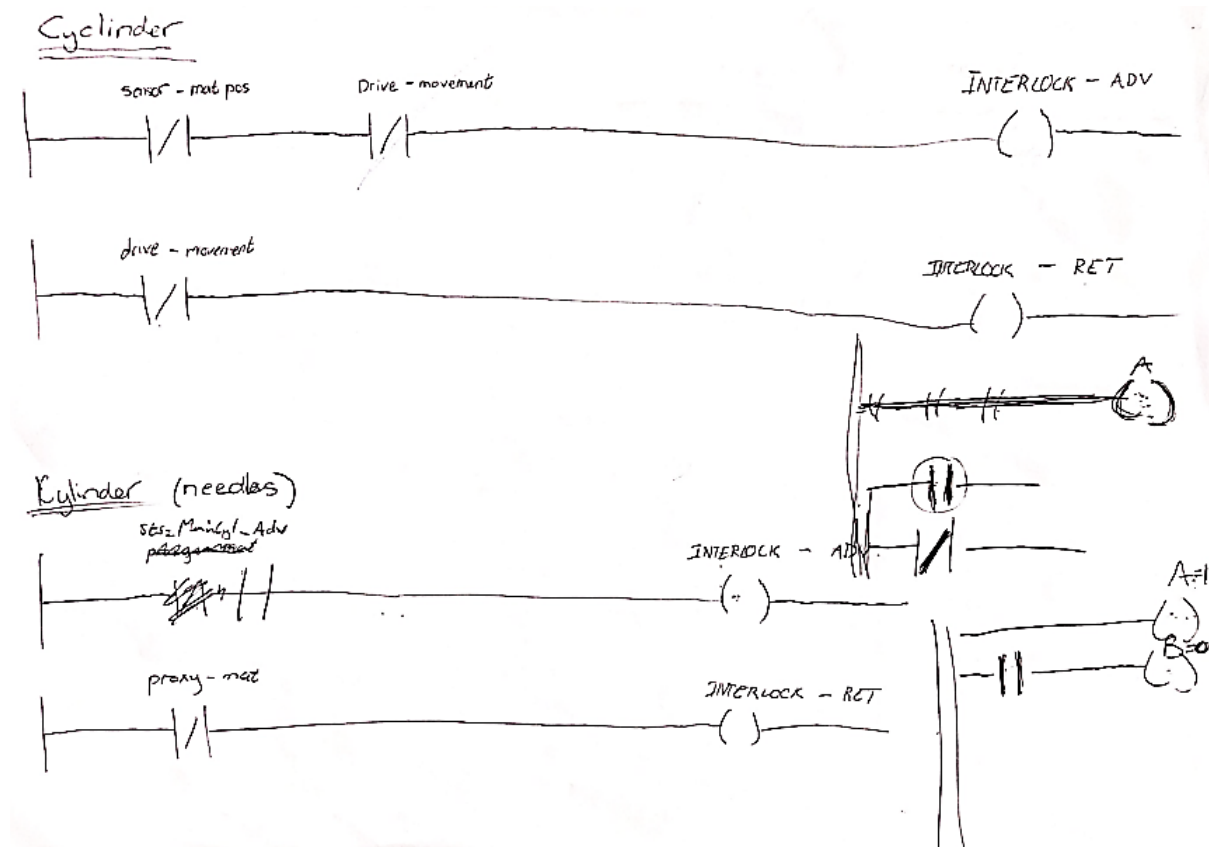 Cyclinder
sensor - mat pos Drive - movement INTERLOCK - ADV
drive - movement INTERLOCK - RET
A
Cylinder (needles)
sts_MainCyl_Adv
INTERLOCK - ADV
A=1
B=0
proxy - mat INTERLOCK - RET